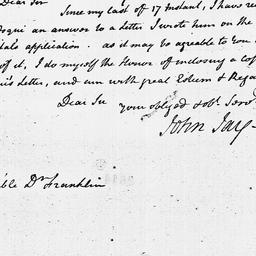 Dear Sir
Since my last of 17 Instant, I have re
an answer to a Letter I wrote him on the
application. as it may be agreable to You
of it, I do myself the Honor of enclosing a Cop
is Letter, and am with great Esteem & Rega
Dear Sir
your obliged & obt. Servt
John Jay
ble Dr Franklin